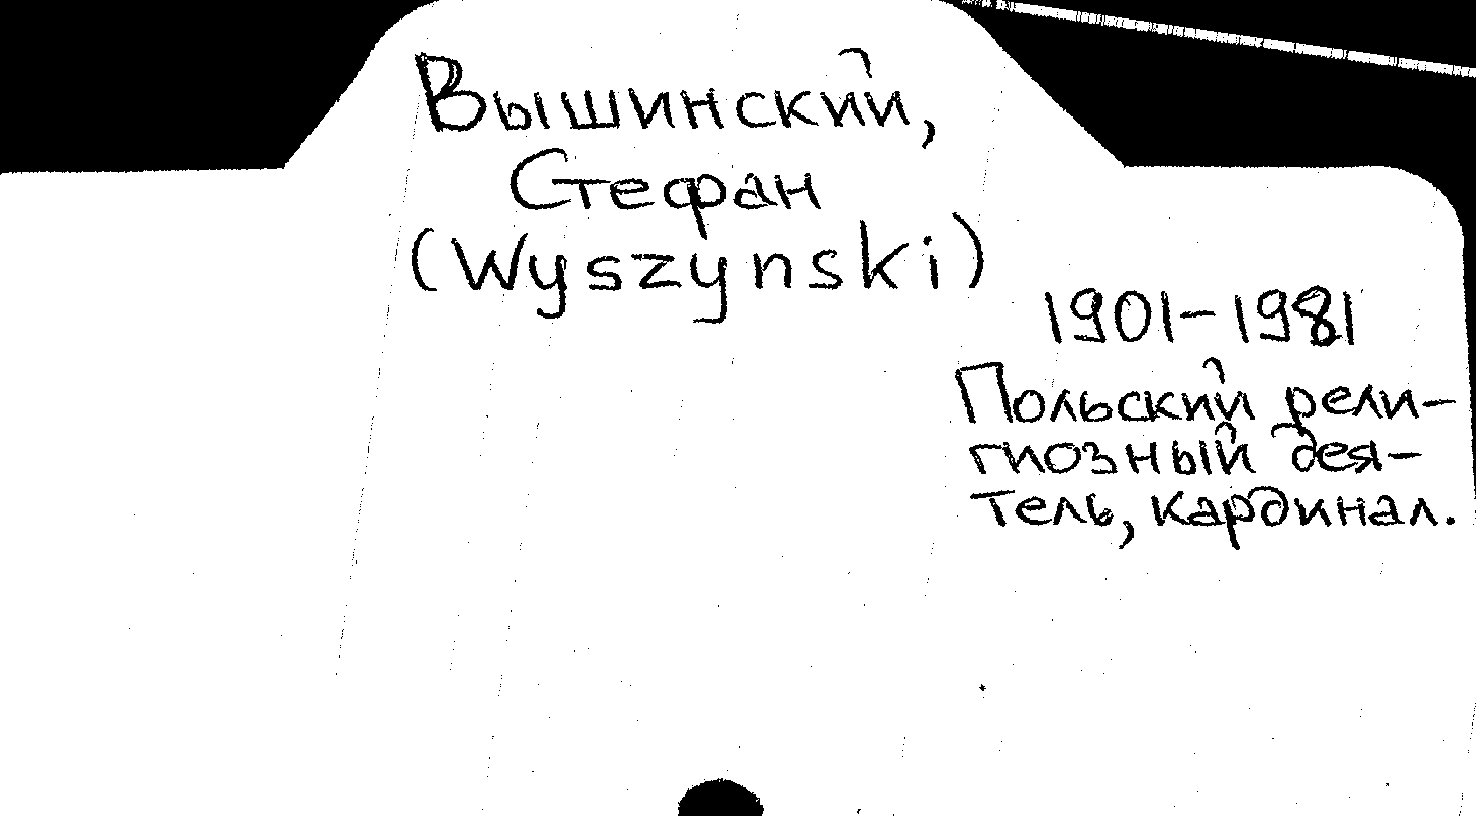 Вышинский,
Стефан
(Wyszynski)
1901-1981
Польский рели-
гиозный дея-
тель, кардинал.